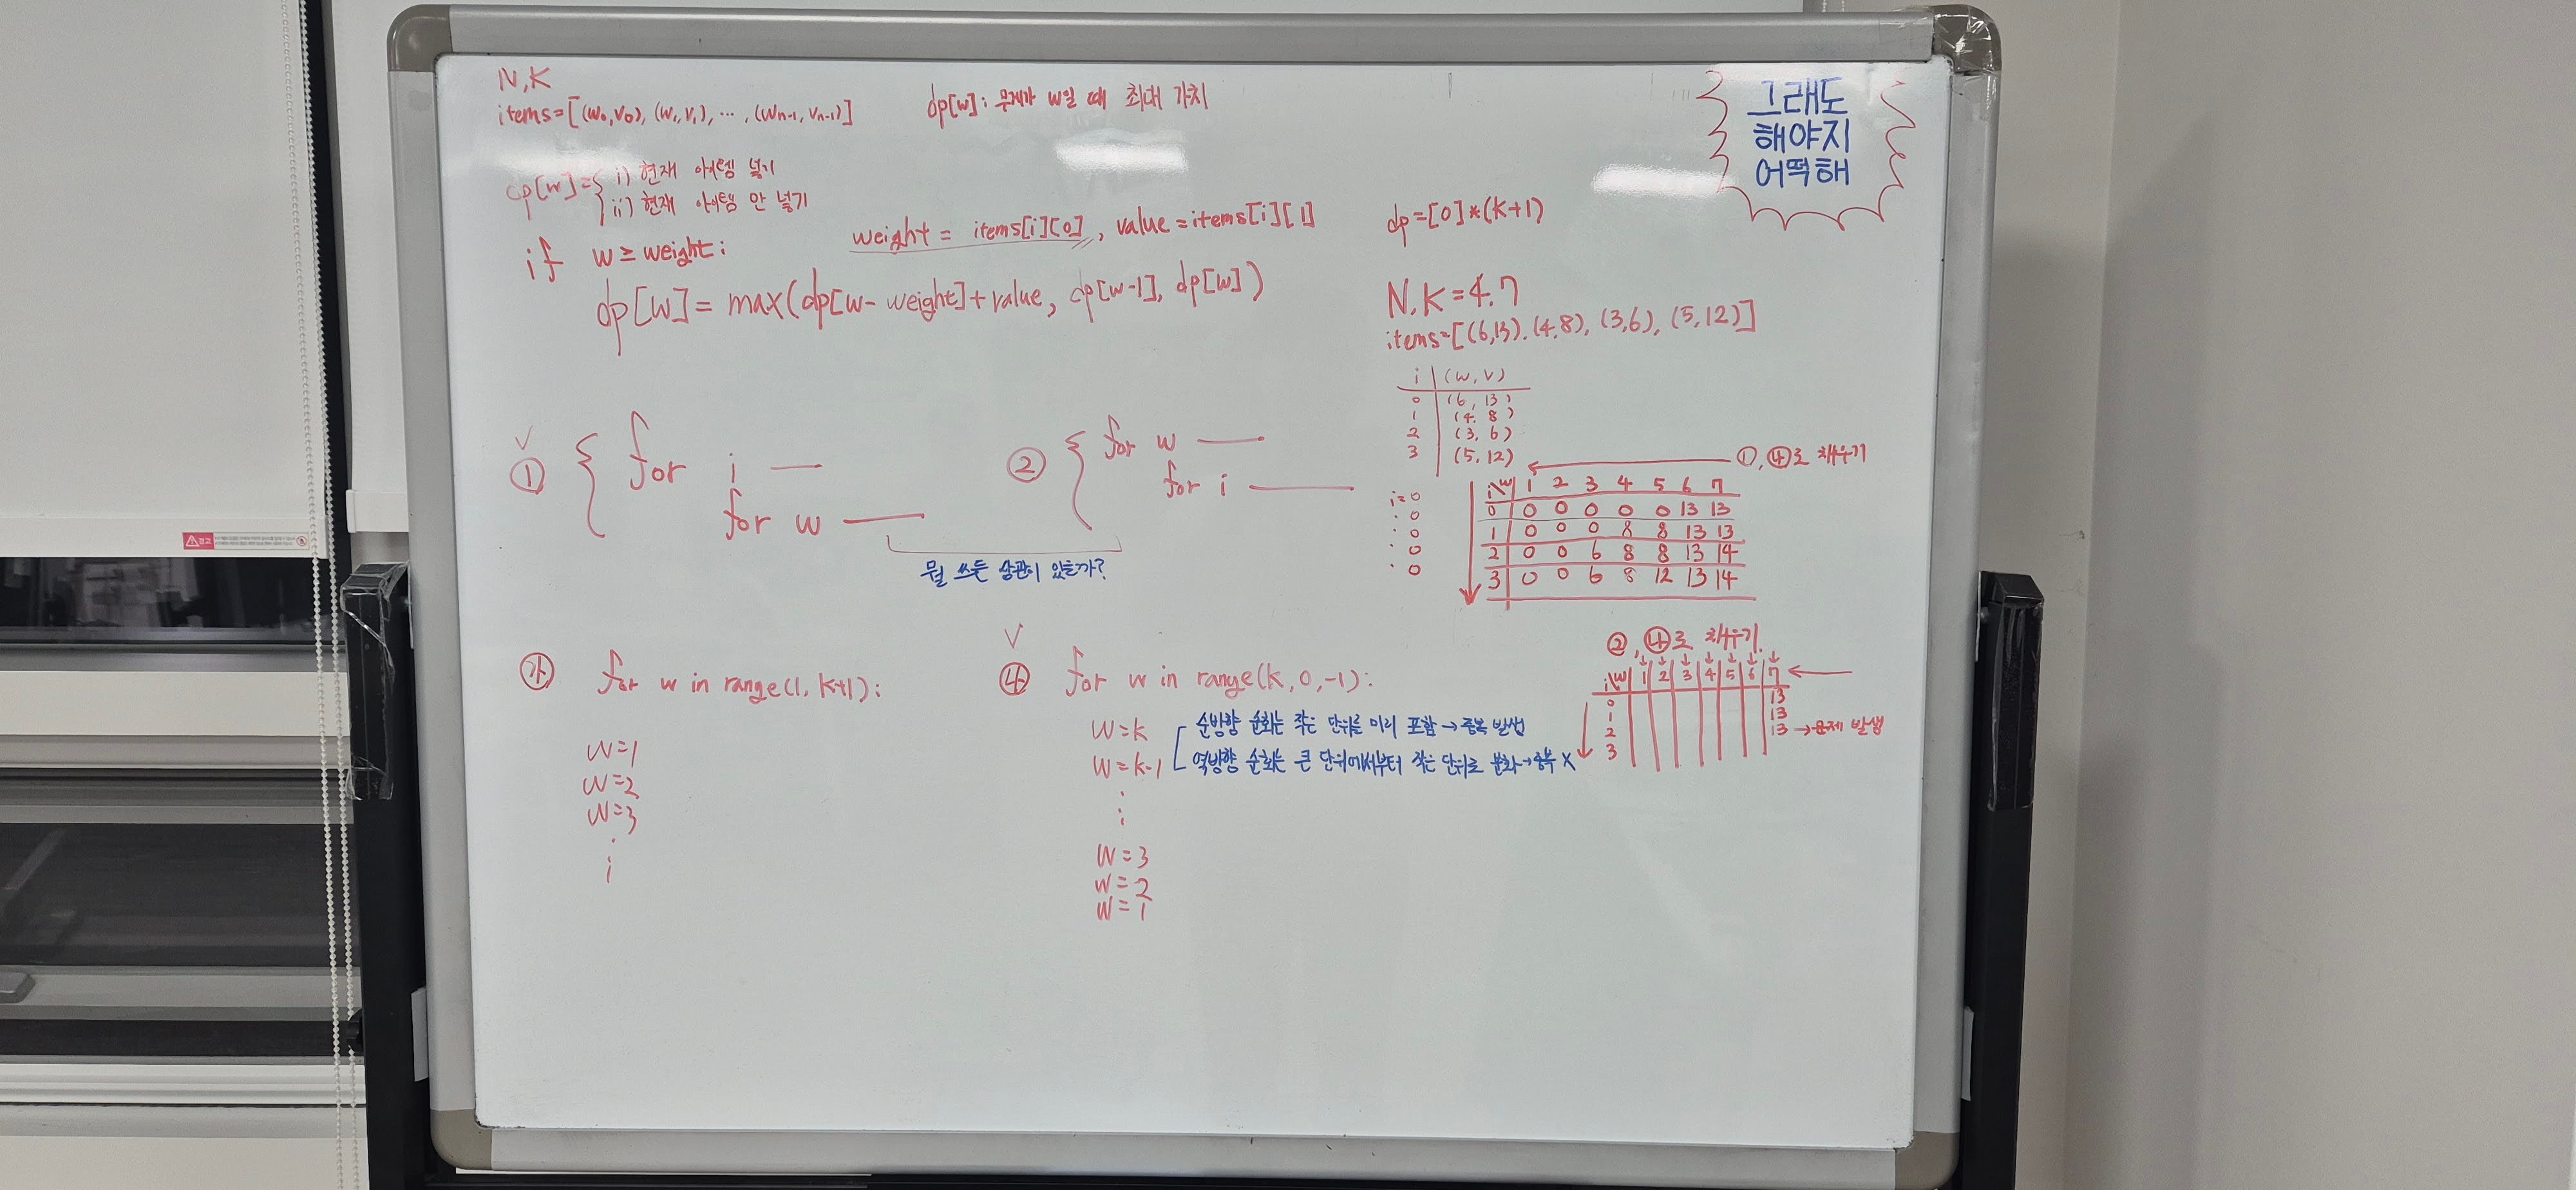 N,K
items=[(w₀,v₀), (w₁,v₁), ⋯ , (wn-1, vn-1)]
dp[w] : 무게가 w일 때 최대 가치
그래도
해야지
어떡해
dp[w]={ i) 현재 아이템 넣기
ii) 현재 아이템 안 넣기
weight = items[i][0], value = items[i][1]
dp=[0]*(K+1)
if w ≥ weight:
dp[w] = max(dp[w- weight]+value, dp[w-1], dp[w])
N,K=4,7
items=[(6,13), (4,8), (3,6), (5,12)]
i | (w, v)
0 | (6, 13)
1 | (4, 8)
2 | (3, 6)
3 | (5, 12)
✓
① { for i —
for w —
② { for w —
for i —
뭘 쓰든 상관이 있을까?
①, ㉯로 채우기
i\w 1 2 3 4 5 6 7
0 0 0 0 0 0 13 13
1 0 0 0 8 8 13 13
2 0 0 6 8 8 13 14
3 0 0 6 8 12 13 14
i=0
: 0
: 0
: 0
: 0
㉮ for w in range(1, K+1):
w=1
w=2
w=3
⋮
✓
㉯ for w in range(K, 0, -1):
w=K
w=K-1
⋮
w=3
w=2
w=1
순방향 순회는 작은 단위를 미리 포함 → 중복 발생
역방향 순회는 큰 단위에서부터 작은 단위로 분화→중복 X
②, ㉯로 채우기
i\w 1 2 3 4 5 6 7
0 13
1 13
2 13 → 문제 발생
3
경고